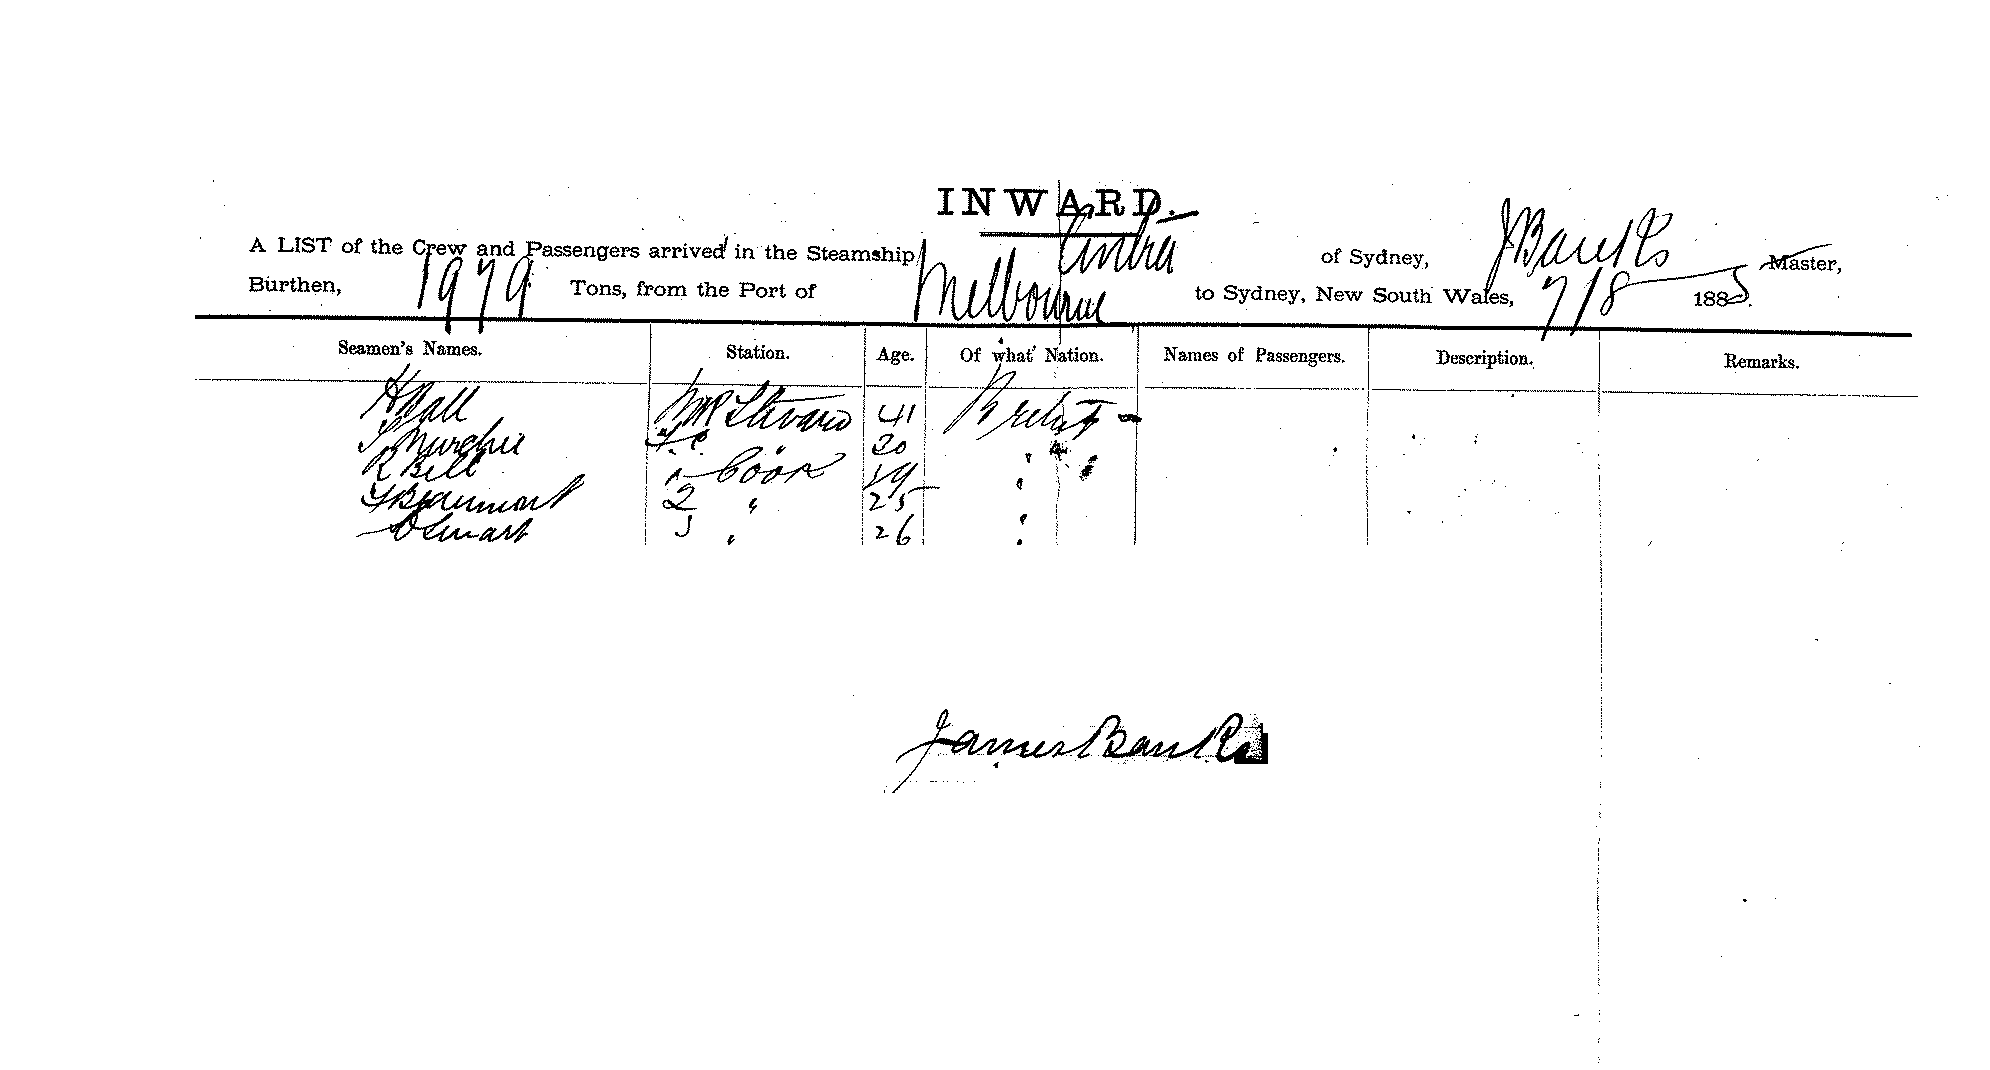 INWARD.
A LIST of the Crew and Passengers arrived in the Steamship Cintra of Sydney, J Banks Master,
Burthen, 1979 Tons, from the Port of Melbourne to Sydney, New South Wales, 7/8 1885.
Seamen's Names. Station. Age. Of what Nation. Names of Passengers. Description. Remarks.
H Hall Steward 41 British
Murchie 20 "
R Bell 1 Cook 19 "
F Beaumont 2 " 25 "
Stewart 3 " 26 "
James Banks